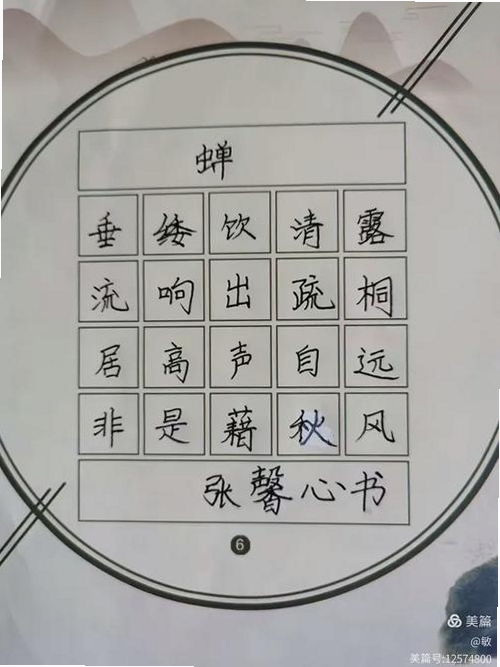 蝉
垂緌饮清露
流响出疏桐
居高声自远
非是藉秋风
张馨心书
6
美篇
@敏
美篇号:12574800